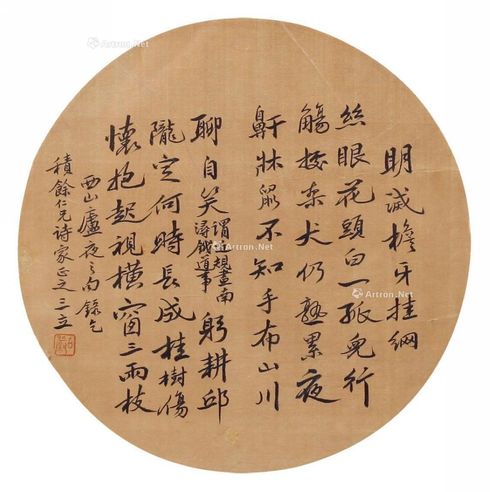 明滅檐牙挂網
絲眼花頭白一孤兒行
觴犬仍熟累夜
鼾牀鼠不知手布山川
聊自笑謂規畫南潯鐵道事躬耕邱
隴定何時長成桂樹傷
懷抱起視橫窗三兩枝
西山廬夜之句錄乞
積餘仁兄诗家正之三立
Artron.Net
Artron.Net
Artron.Net
Artron.Net